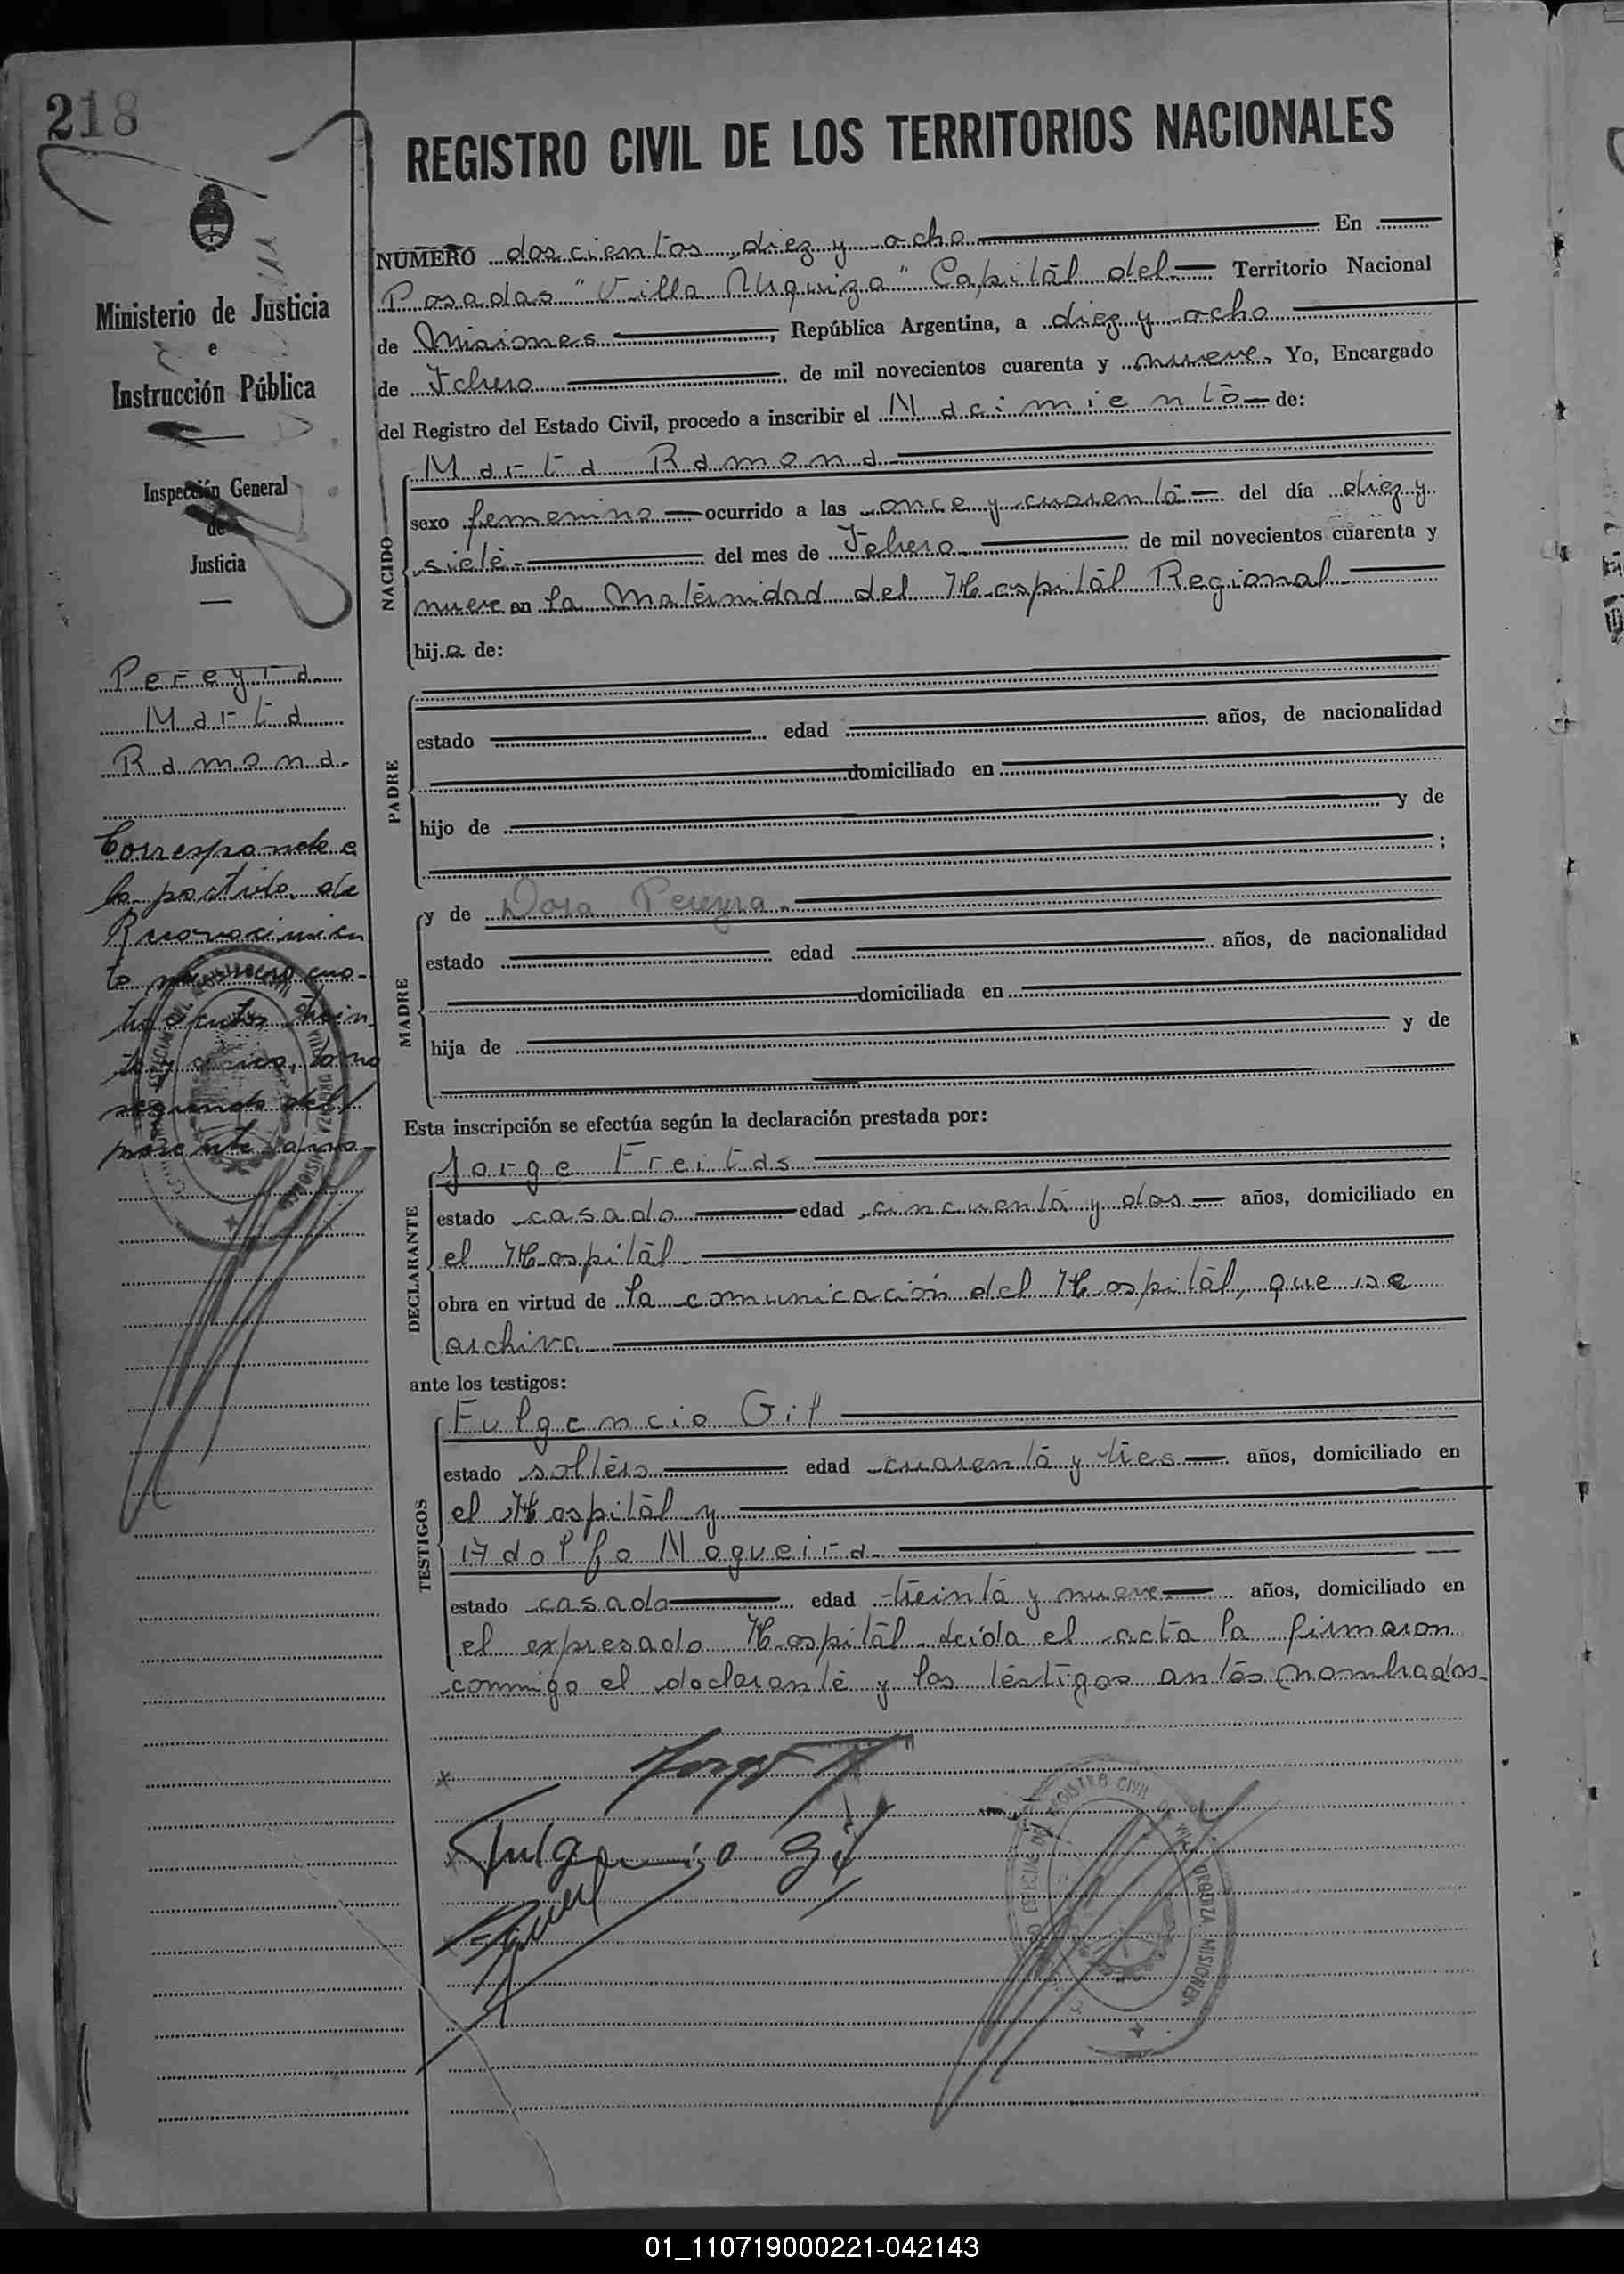 218
REGISTRO CIVIL DE LOS TERRITORIOS NACIONALES
Ministerio de Justicia
e
Instrucción Pública
Inspección General
de
Justicia
Pereyra
Marta
Ramona.
Corresponde a
la partida de
Reconocimien
to numero cua-
trocientos trein
ta y cinco, tomo
segundo del
presente año-
NÚMERO doscientos diez y ocho En
Posadas "Villa Urquiza" Capital del Territorio Nacional
de Misiones, República Argentina, a diez y ocho
de Febrero de mil novecientos cuarenta y nueve. Yo, Encargado
del Registro del Estado Civil, procedo a inscribir el Nacimiento de:
NACIDO
Marta Ramona
sexo femenino ocurrido a las once y cuarenta del día diez y
siete del mes de Febrero de mil novecientos cuarenta y
nueve en la Maternidad del Hospital Regional
hija de:
PADRE
estado edad años, de nacionalidad
domiciliado en
hijo de y de
;
MADRE
y de Dora Pereyra.
estado edad años, de nacionalidad
domiciliada en
hija de y de
Esta inscripción se efectúa según la declaración prestada por:
DECLARANTE
Jorge Freitas
estado casado edad cincuenta y dos años, domiciliado en
el Hospital
obra en virtud de la comunicación del Hospital, que se
archiva
ante los testigos:
TESTIGOS
Fulgencio Gil
estado soltero edad cuarenta y tres años, domiciliado en
el Hospital y
Adolfo Nogueira.
estado casado edad treinta y nueve años, domiciliado en
el expresado Hospital. Leída el acta la firmaron
conmigo el declarante y los testigos antes nombrados-
Jorge
Fulgencio Gil
REGISTRO CIVIL DE VILLA URQUIZA MISIONES
01_110719000221-042143